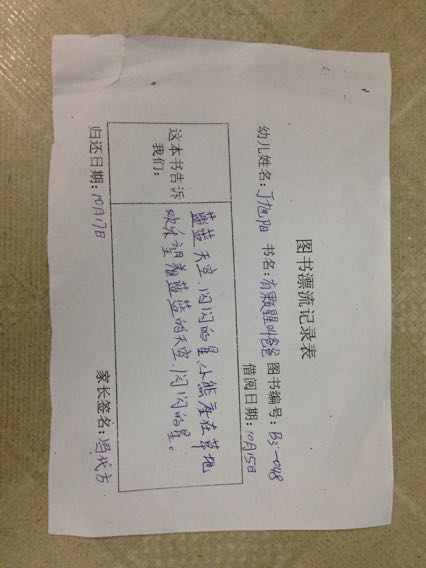 图书漂流记录表
幼儿姓名：丁旭 书名：有颗星叫爸爸 图书编号：B3-048
借阅日期：10月15日
这本书告诉我们：
蓝蓝天空、闪闪的星、小熊座在草地
欢乐望着蓝蓝的天空、闪闪的星。
归还日期：10月17日
家长签名：冯代方